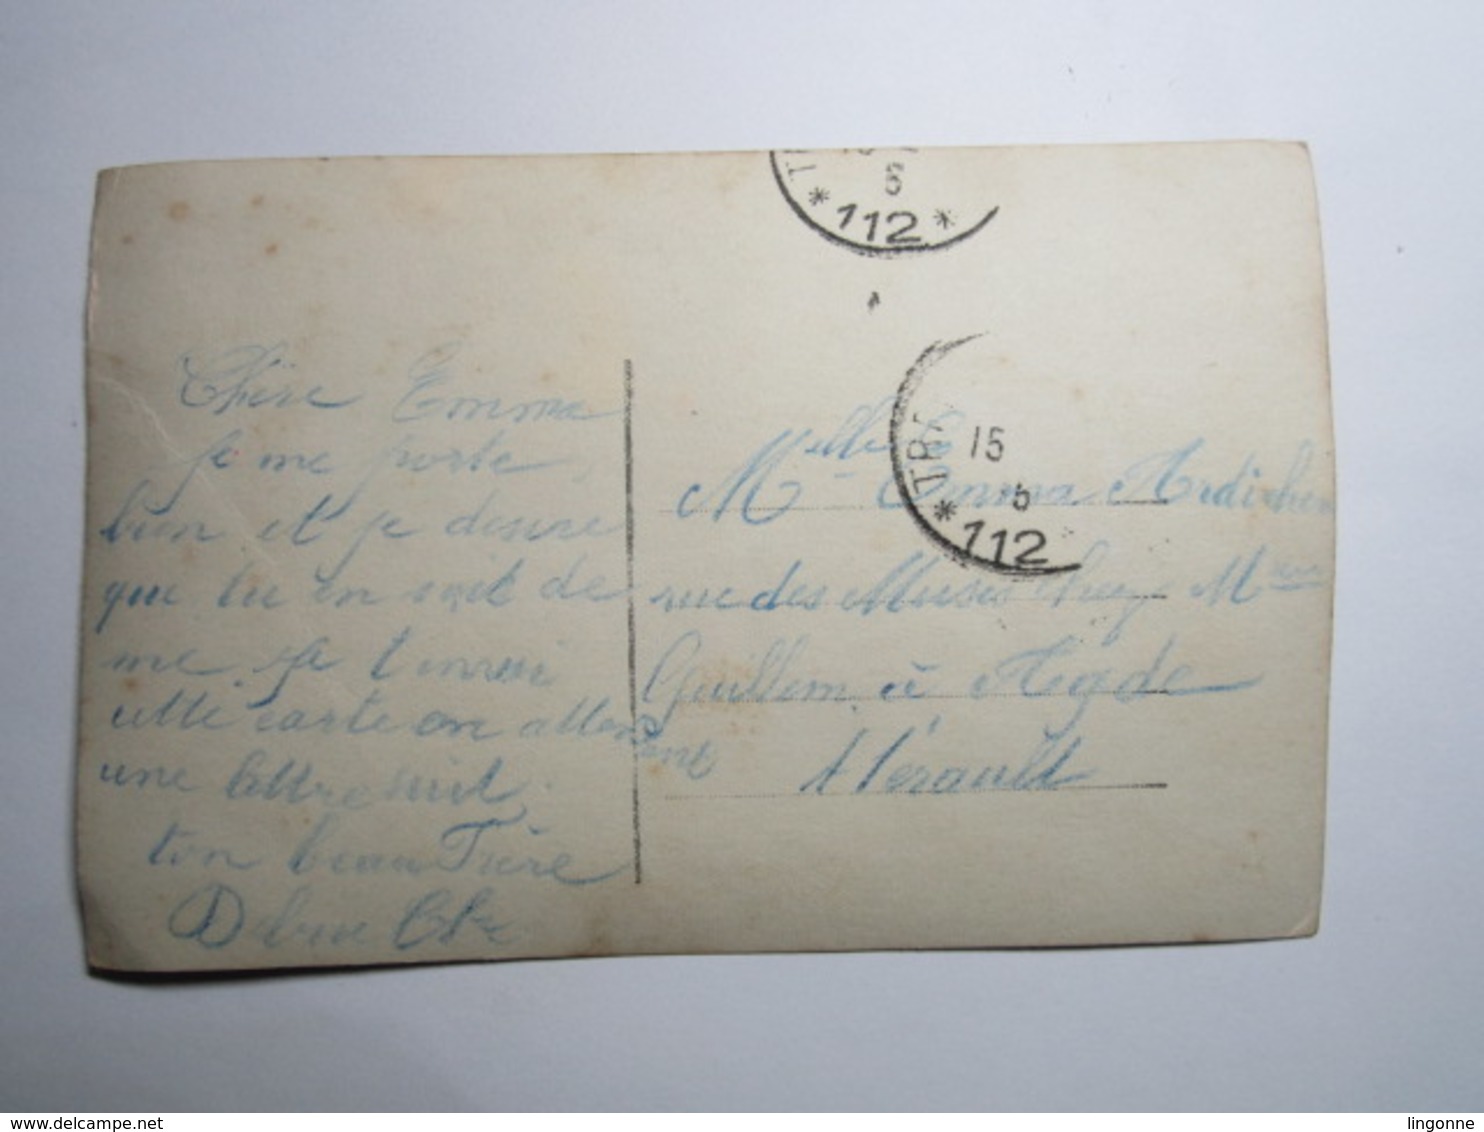 Chère Emma
je me porte
bien et je desire
que tu en soit de
me Je t'envoi
cette carte en attendent
une lettre suit
ton beau Frère
TR
6
*112*
TR
15
5
*112
Melle Emma Ardichen
rue des Muses chez Mme
Guillem à Agde
Hérault
www.delcampe.net
lingonne